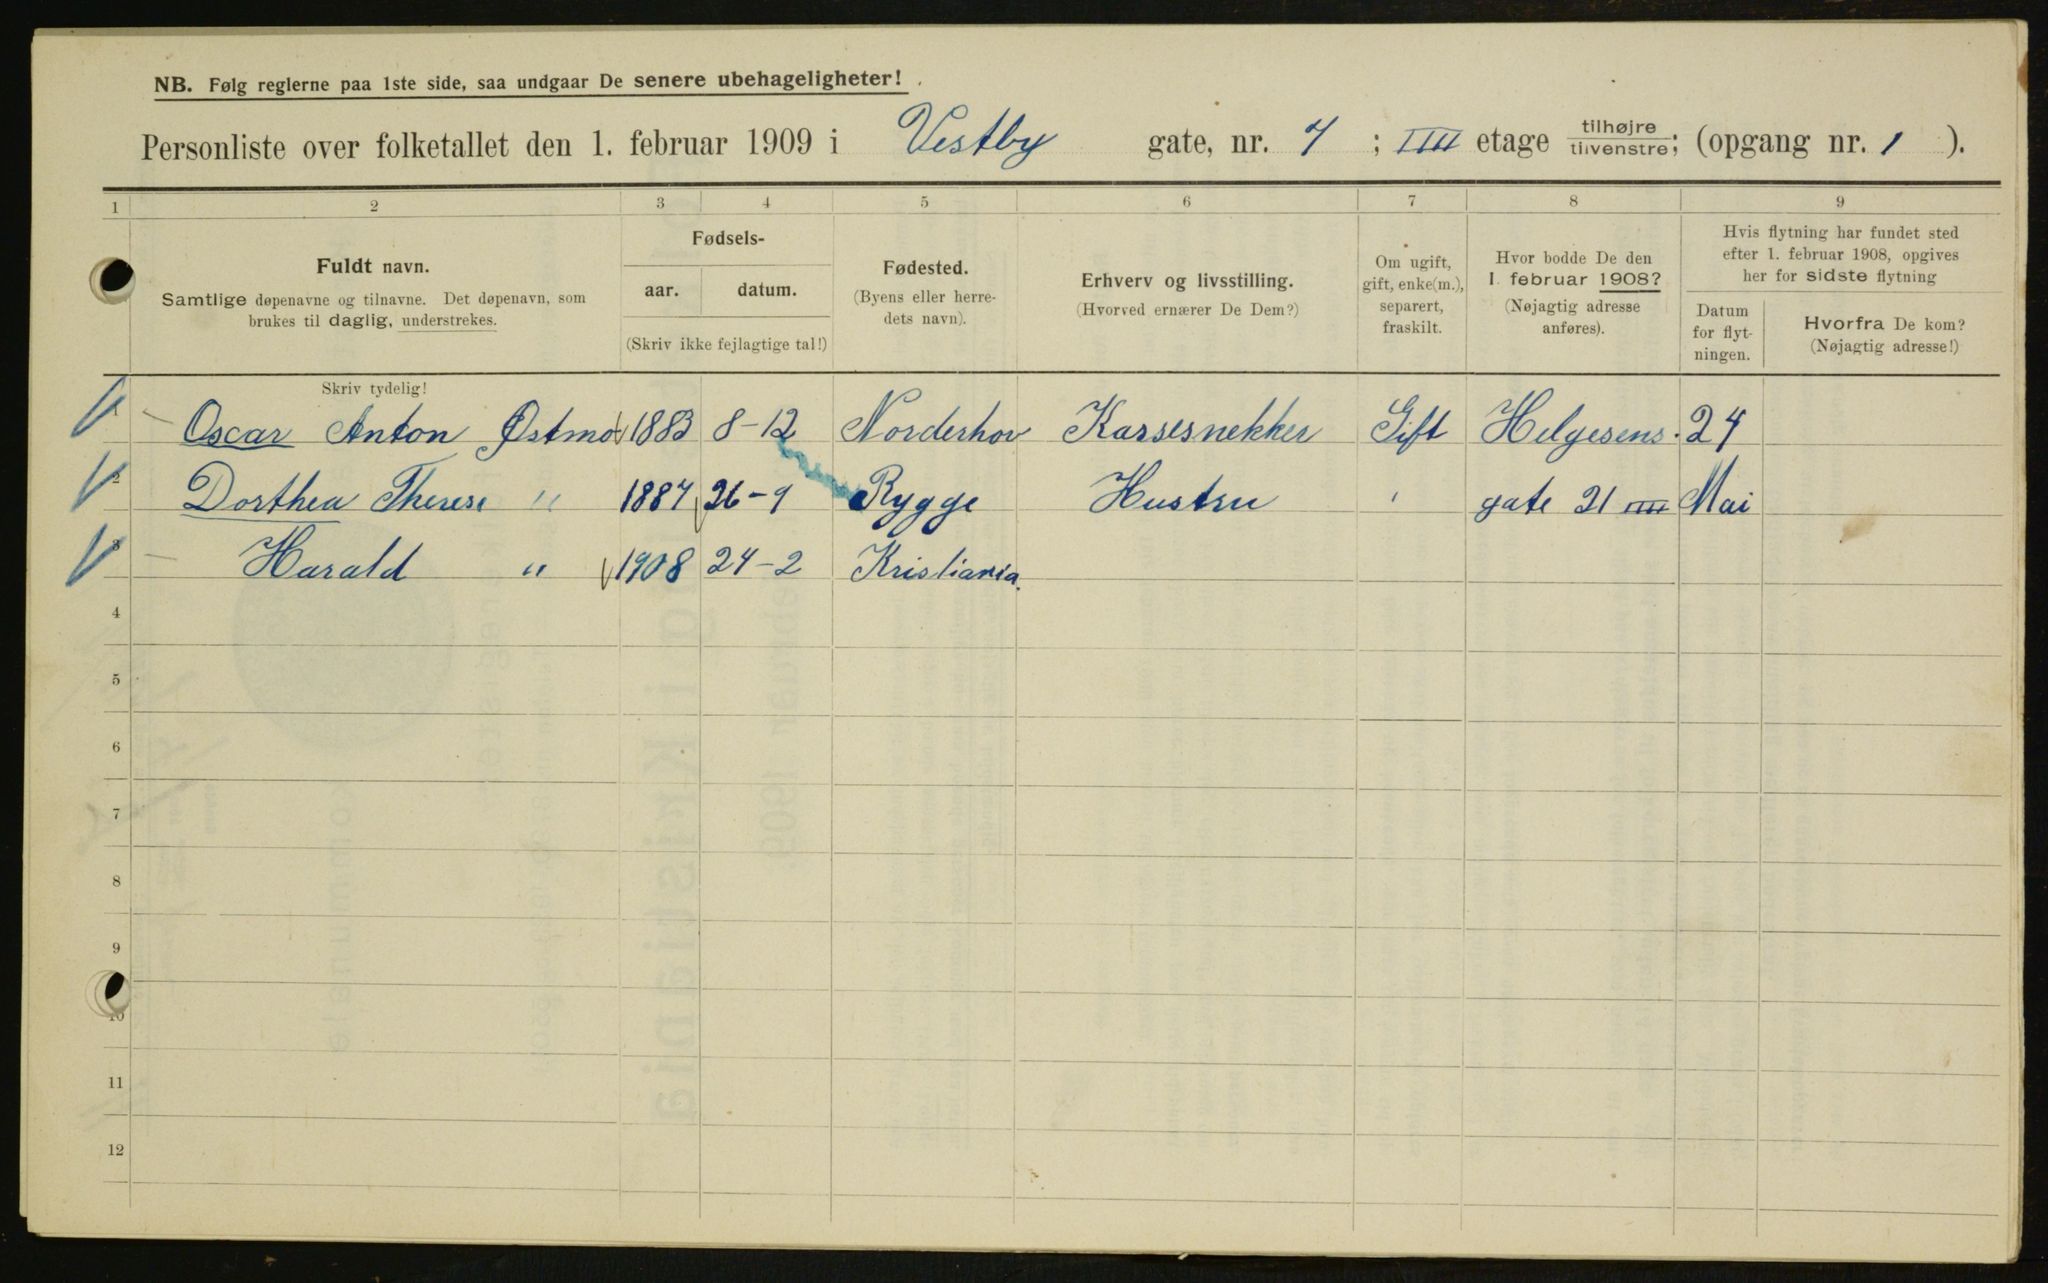 NB. Følg reglerne paa 1ste side, saa undgaar De senere ubehageligheter!
Personliste over folketallet den 1. februar 1909 i Vestby gate, nr. 7 ; IIII etage tilhøjre tilvenstre; (opgang nr. 1 ).
1 2 3 4 5 6 7 8 9
Fuldt navn.
Samtlige døpenavne og tilnavne. Det døpenavn, som
brukes til daglig, understrekes.
Fødsels-
aar. datum.
(Skriv ikke fejlagtige tal!)
Fødested.
(Byens eller herre-
dets navn).
Erhverv og livsstilling.
(Hvorved ernærer De Dem?)
Om ugift,
gift, enke(m.),
separert,
fraskilt.
Hvor bodde De den
1. februar 1908?
(Nøjagtig adresse
anføres).
Hvis flytning har fundet sted
efter 1. februar 1908, opgives
her for sidste flytning
Datum
for flyt-
ningen.
Hvorfra De kom?
(Nøjagtig adresse!)
Skriv tydelig!
1 Oscar Anton Østmo 1883 8-12 Norderhov Kassesnekker Gift Helgesens. 24
2 Dorthea Therese " 1887 26-9 Rygge Hustru ' gate 21 IIII Mai
3 Harald " 1908 24-2 Kristiania.
4
5
6
7
8
9
10
11
12